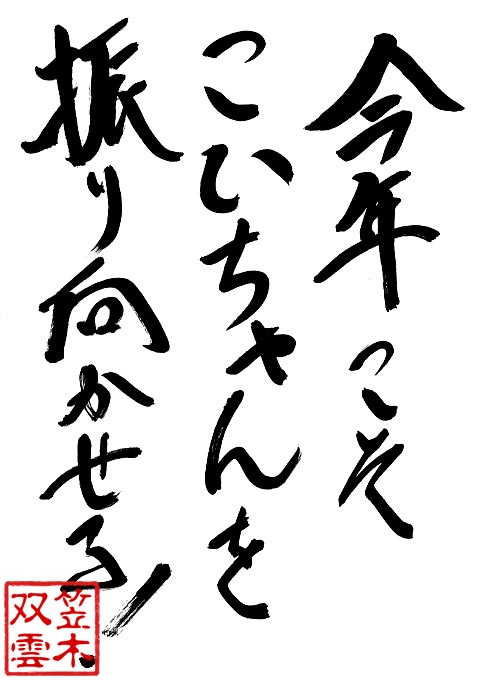 今年こそ
こひちゃんを
振り向かせる!
笠木
双雲